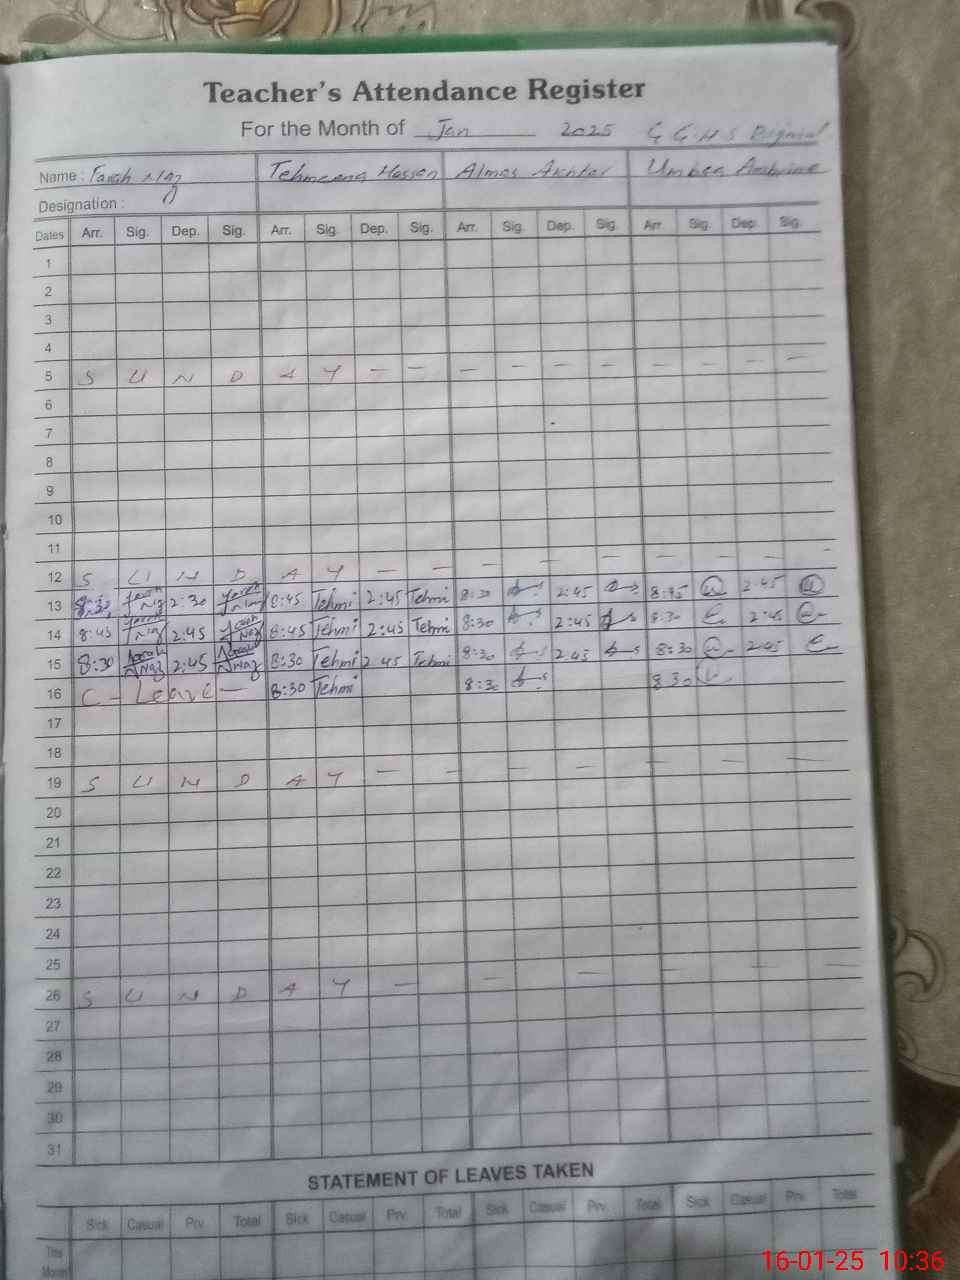 Teacher's Attendance Register
For the Month of Jan 2025 G G H S
Name : Farah Naz Tehmeena Hassan Almas Akhtar Umbea Ambrine
Designation :
Dates Arr. Sig. Dep. Sig. Arr. Sig. Dep. Sig. Arr. Sig. Dep. Sig. Arr. Sig. Dep. Sig.
1
2
3
4
5 S U N D A Y — — — — — — — — — —
6
7
8
9
10
11
12 S U N D A Y — — — — — — — — — —
13 8:30 Farah Naz 2:30 Farah Naz 8:45 Tehmi 2:45 Tehmi 8:30 2:45 8:45 2:45
14 8:45 Farah Naz 2:45 Farah Naz 8:45 Tehmi 2:45 Tehmi 8:30 2:45 8:30 2:45
15 8:30 Farah Naz 2:45 Farah Naz 8:30 Tehmi 2:45 Tehmi 8:30 2:45 8:30 2:45
16 C - Leave — 8:30 Tehmi 8:30 8 30
17
18
19 S U N D A Y — — — — — — —
20
21
22
23
24
25
26 S U N D A Y — — — — — —
27
28
29
30
31
STATEMENT OF LEAVES TAKEN
Sick Casual Prv. Total Sick Casual Prv. Total Sick Casual Prv. Total Sick Casual Prv. Total
This
Month
16-01-25 10:36